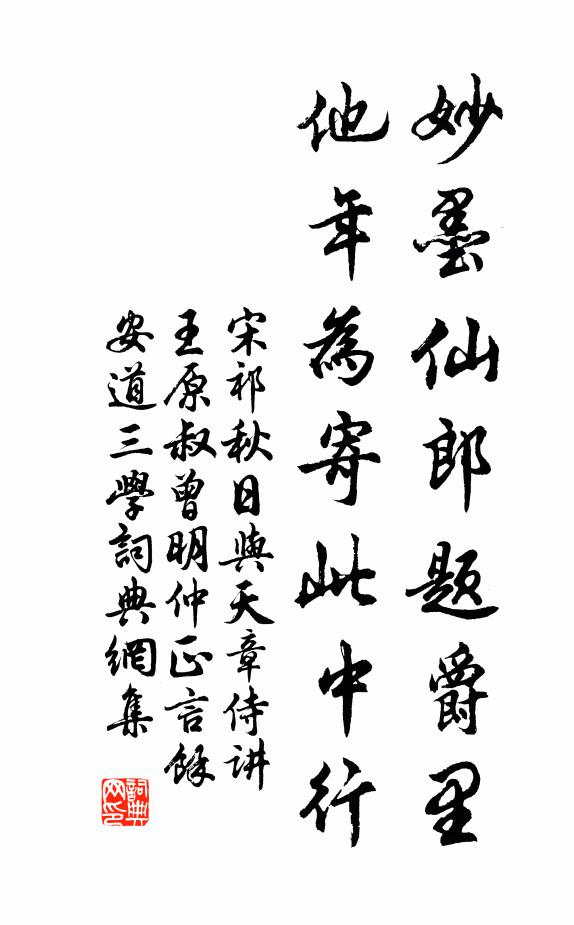 妙墨仙郎题爵里
他年為寄此中行
宋祁秋日與天章侍讲
王原叔曾明仲正言餘
安道三學詞典網集
詞典网印